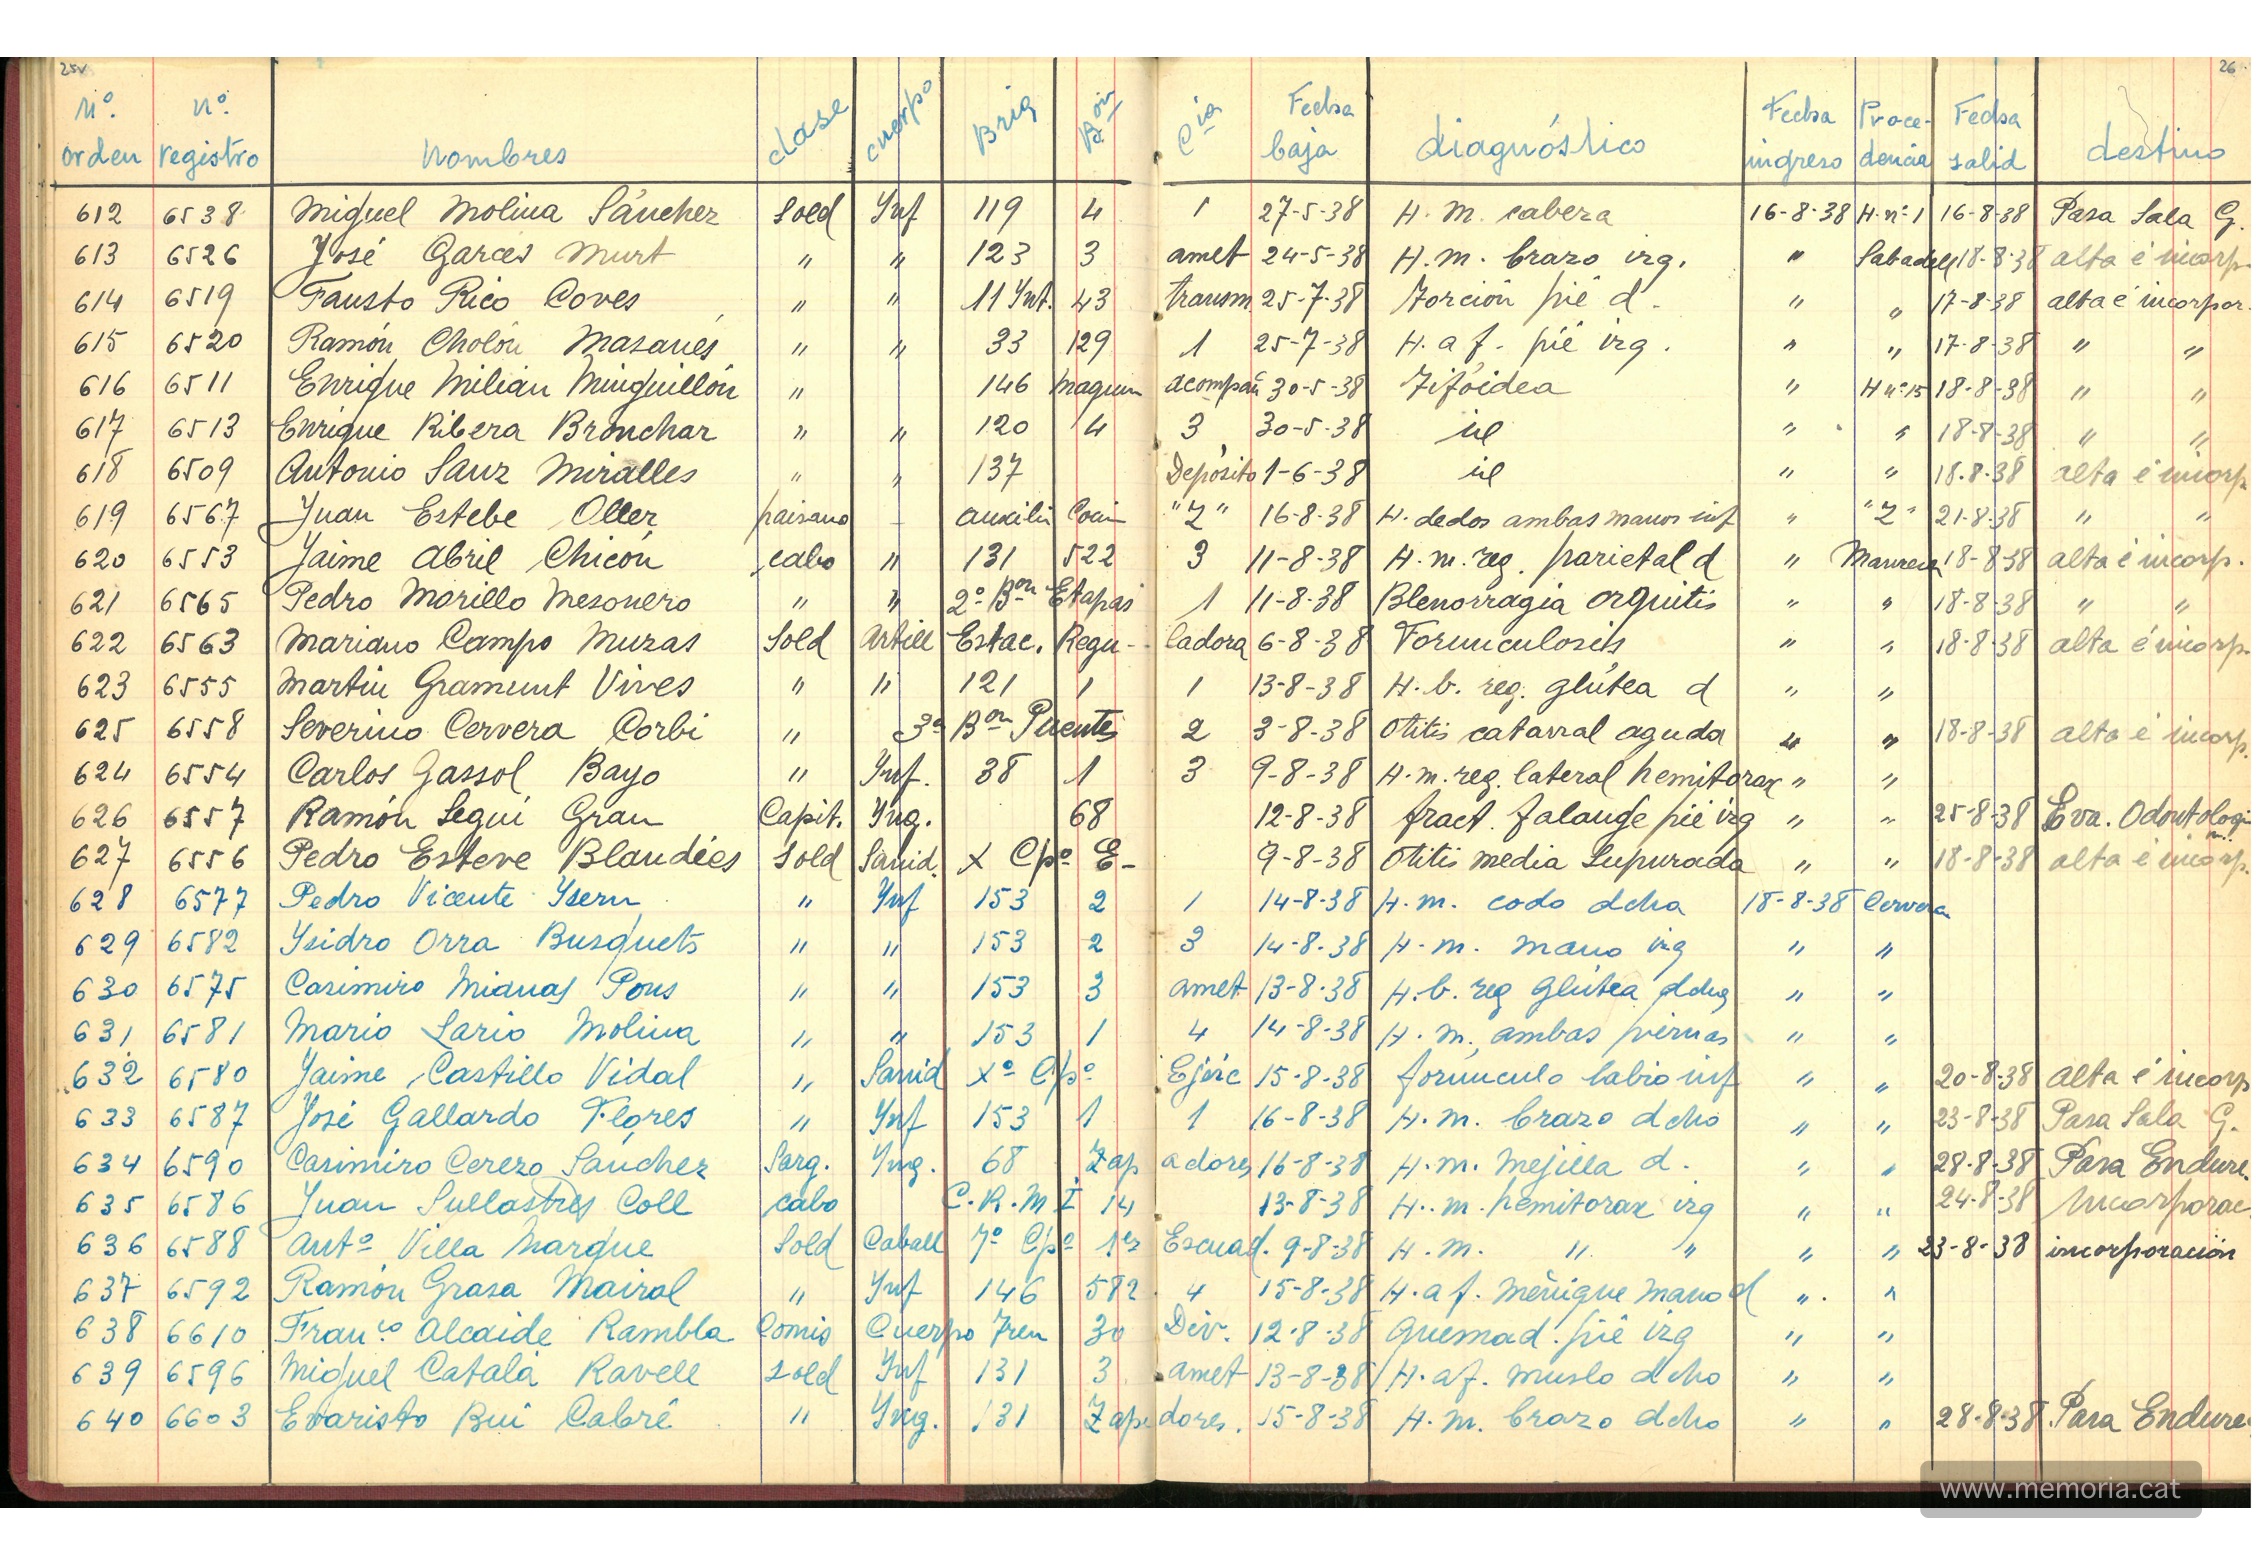 25v
26
Nº. orden nº. registro Nombres clase cuerpo Brig Bón Cia Fecha baja diagnóstico Fecha ingreso Procedencia Fecha salid destino
612 6538 Miguel Molina Sánchez Sold Ynf 119 4 1 27-5-38 H. M. cabeza 16-8-38 H. nº 1 16-8-38 Pasa Sala G.
613 6526 José Garcés Murt " " 123 3 amet 24-5-38 H. m. brazo izq. " Sabadell 18-8-38 alta é incorp.
614 6519 Fausto Rico Coves " " 11 Ynt. 43 transm. 25-7-38 Torción pié d. " " 17-8-38 alta é incorpor.
615 6520 Ramón Cholón Masanés " " 33 129 1 25-7-38 H. a f. pié izq. " " 17-8-38 " "
616 6511 Enrique Milián Minguillón " 146 Maquin acompañ 30-5-38 Tifóidea " H nº 15 18-8-38 " "
617 6513 Enrique Ribera Bronchar " " 120 4 3 30-5-38 id " " 18-8-38 " "
618 6509 Antonio Sanz Miralles " " 137 Depósito 1-6-38 id " " 18-8-38 alta é incorp.
619 6567 Juan Estebe Oller paisano - auxiliar Cocin "Z" 16-8-38 H. dedos ambas manos inf " "Z" 21-8-38 " "
620 6553 Jaime Abril Chicón cabo " 131 522 3 11-8-38 H. m. reg. parietal d " Manresa 18-8-38 alta é incorp.
621 6565 Pedro Morillo Mesonero " " 2º Bon Etapas 1 11-8-38 Blenorragia orquitis " " 18-8-38 " "
622 6563 Mariano Campo Muzas Sold Artill Estac. Regu- ladora 6-8-38 Forunculosis " " 18-8-38 alta é incorp.
623 6555 Martin Gramunt Vives " " 121 1 1 13-8-38 H. b. reg. glútea d " "
625 6558 Severino Cervera Corbi " 3º Bon Puentes 2 3-8-38 Otitis catarral aguda " " 18-8-38 alta é incorp.
624 6554 Carlos Gassol Bayo " Ynf. 38 1 3 9-8-38 H. m. reg. lateral hemitorax " "
626 6557 Ramón Seguí Grau Capit. Yng. 68 12-8-38 fract. falange pié izq " " 25-8-38 Eva. Odontologi
627 6556 Pedro Esteve Blandiés Sold Sanid. X Cpº E- 9-8-38 Otitis media Supurada " " 18-8-38 alta é incorp.
628 6577 Pedro Vicente Ysern " Ynf 153 2 1 14-8-38 H. m. codo dcha 18-8-38 Cervera
629 6582 Ysidro Orra Busquets " " 153 2 3 14-8-38 H. m. mano izq " "
630 6575 Casimiro Mianas Pons " " 153 3 amet 13-8-38 H. b. reg glútea dcha " "
631 6581 Mario Lario Molina " " 153 1 4 14-8-38 H. m. ambas piernas " "
632 6580 Jaime Castillo Vidal " Sanid Xº Cpº Ejérc 15-8-38 forúnculo labio inf " " 20-8-38 alta é incorp
633 6587 José Gallardo Flores " Ynf 153 1 1 16-8-38 H. m. brazo dcho " " 23-8-38 Pasa Sala G.
634 6590 Casimiro Cerezo Sánchez Sarg. Yng. 68 Zap adores 16-8-38 H. m. mejilla d. " " 28-8-38 Pasa Endure.
635 6586 Juan Sullastres Coll cabo C. R. M I 14 13-8-38 H. m. hemitorax izq " " 24-8-38 Yncorporac.
636 6588 Antº Villa Marque Sold Caball 7º Cpº 1er Escuad. 9-8-38 H. m. " " " " 23-8-38 incorporación
637 6592 Ramón Grasa Mairal " Ynf 146 582 4 15-8-38 H. a f. meñique mano d " "
638 6610 Franco Alcaide Rambla Comis Cuerpo Tren 30 Div. 12-8-38 Quemad. pié izq " "
639 6596 Miguel Catalá Ravell sold Ynf 131 3 amet 13-8-38 H. a f. muslo dcho " "
640 6603 Evaristo Bui Cabré " Yng. 131 Zapa dores. 15-8-38 H. M. brazo dcho " " 28-8-38 Pasa Endure
www.memoria.cat